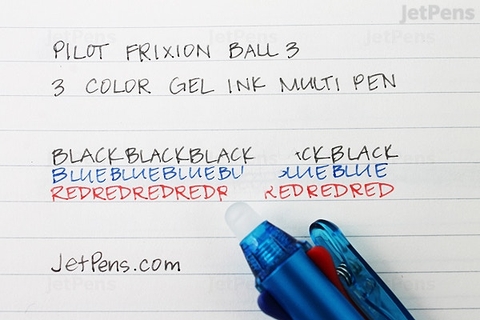 JetPens
PILOT FRIXION BALL 3
3 COLOR GEL INK MULTI PEN
BLACKBLACKBLACK CKBLACK
BLUEBLUEBLUEBU LUEBLUE
REDREDREDREDR REDREDRED
JetPens.com